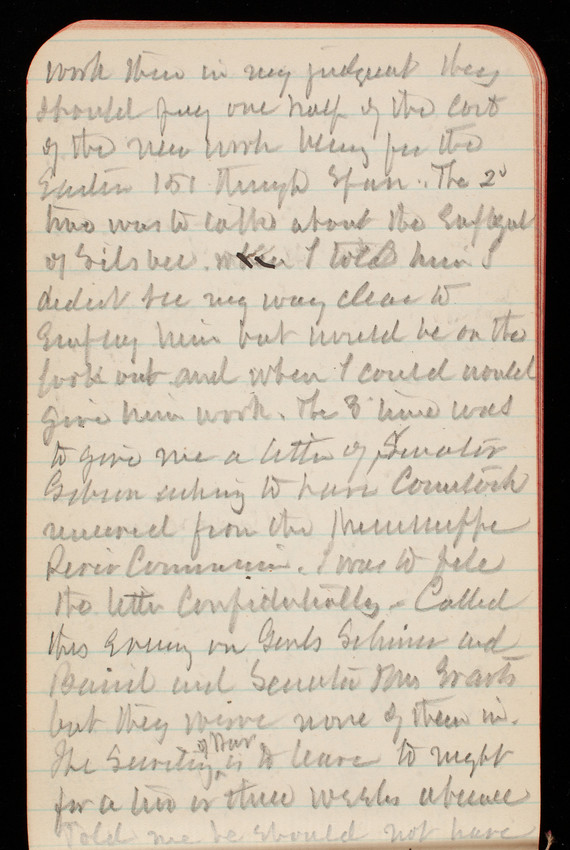 work then in my judgment they
should pay one half of the cost
of the new work being for the
Eastern 151 through Span. The 2d
time was to talk about the Emplymt
of Silsbee. when I told him I
didn't see my way clear to
Employ him but would be on the
look out and when I could would
give him work. The 3 time was
to give me a letter of Senator
Gibson asking to have Comstock
removed from the Mississippi
River Commission. I was to file
the letter Confidentially. Called
this Evening on Genls Schriver and
Baird and Senator Mrs Evarts
but they were none of them in.
The Secretary of War is to leave to night
for a two or three weeks absence
Told me he should not have